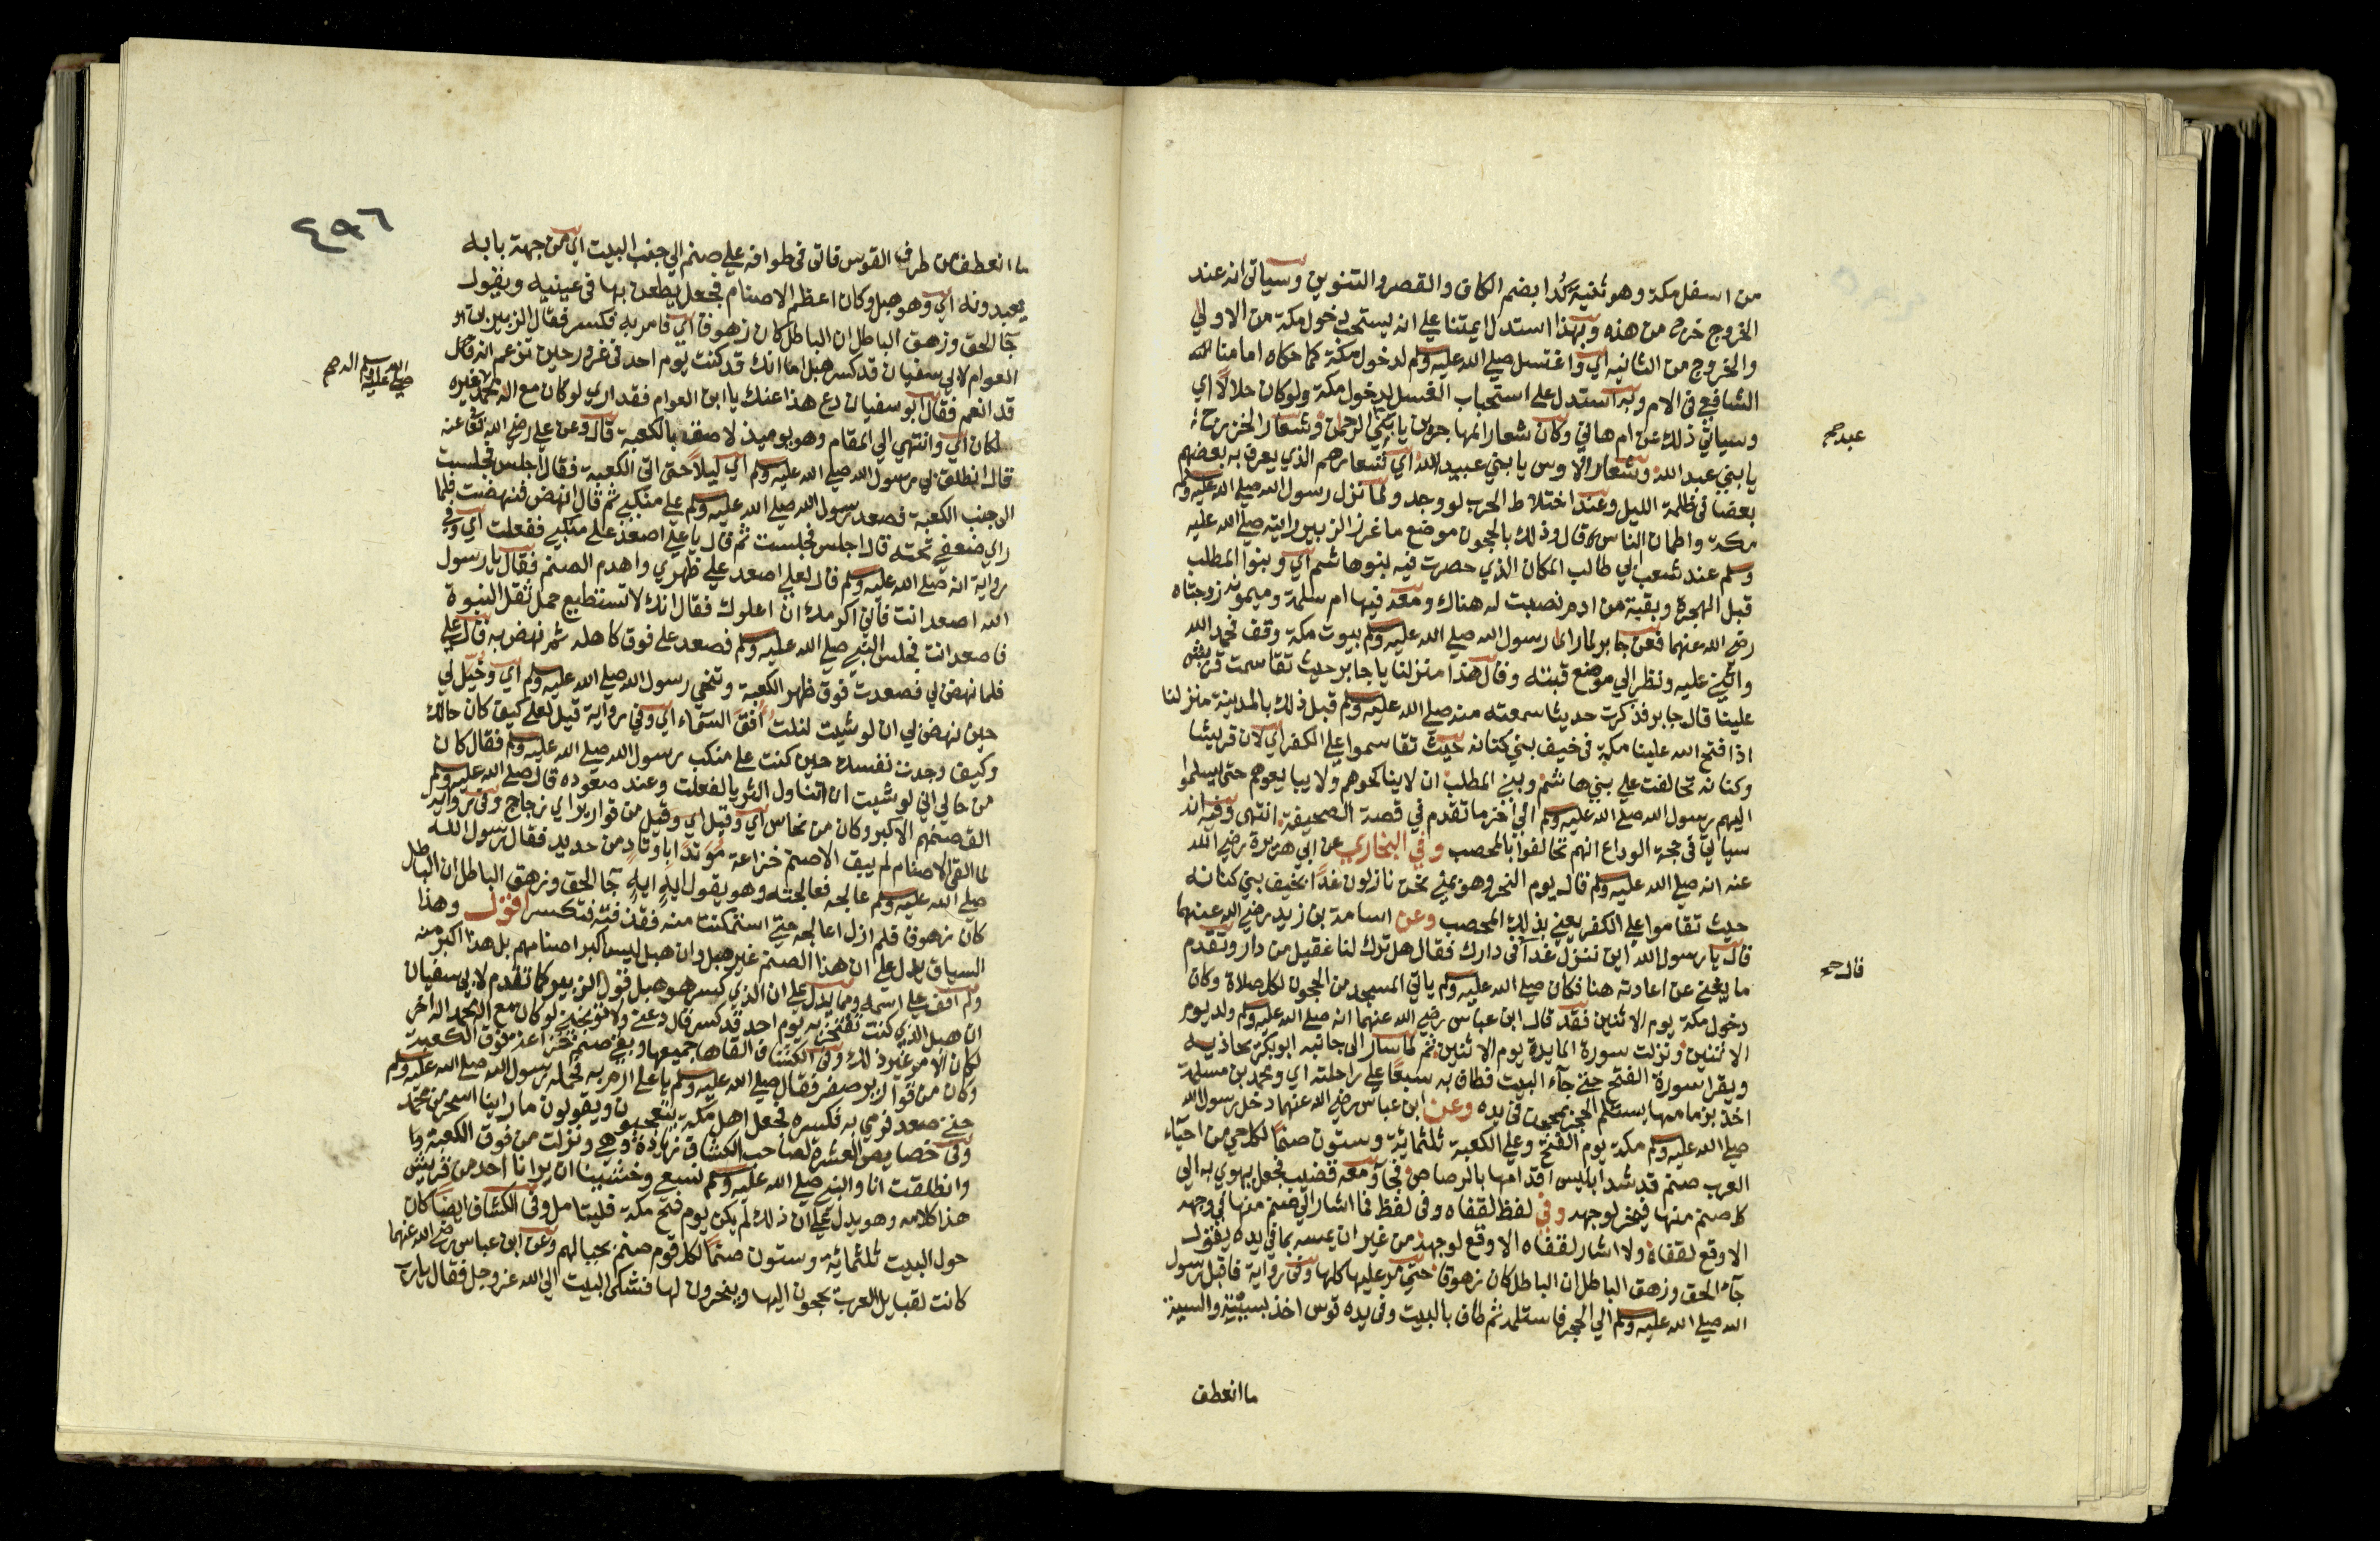 من اسفل مكة وهو ثنية كُدا بضم الكاف والقصر والتنوين وسياتي انه عند
الخروج خرج من هذه وبهذا استدل ايمتنا علي انه يستحب دخول مكة من الاولي
والخروج من الثانيه اي واغتسل صلي الله عليه وسلم لدخول مكة كما حكاه امامنا
الشافعي في الام وبه استدل علي استحباب الغسل لدخول مكة ولو كان حلالا اي
وسياتي ذلك عن ام هاني وكان شعار المهاجرين يا بني عبد الرحمن وشعار الخزرج
يا بني عبد الله وشعار الاوس يا بني عبيد الله اي شعارهم الذي يعرف به بعضهم
بعضا في ظلمة الليل وعند اختلاط الحرب لو وجد ولما نزل رسول الله صلي الله عليه وسلم
مكة واطمان الناس قال وذلك بالحجون موضع ما غرز الزبير رايته صلي الله عليه
وسلم عند شعب ابي طالب المكان الذي حصرت فيه بنو هاشم اي وبنوا المطلب
قبل الهجرة وبقبة من ادم نصبت له هناك ومعه فيها ام سلمة وميمونه زوجتاه
رضي الله عنهما فعن جابر لما راي رسول الله صلي الله عليه وسلم بيوت مكة وقف فحمد الله
واثني عليه ونظر الي موضع قبته وقال هذا منزلنا يا جابر حيث تقاسمت قريش
علينا قال جابر فذكرت حديثا سمعته منه صلي الله عليه وسلم قبل ذلك بالمدينة منزلنا
اذا فتح الله علينا مكة في خيف بني كنانه حيث تقاسموا علي الكفر اي لان قريشا
وكنانه تحالفت علي بني هاشم وبني المطلب ان لا يناكحوهم ولا يبايعوهم حتي يسلموا
اليهم رسول الله صلي الله عليه وسلم الي اخر ما تقدم في قصة الصحيفة انتهي وفيه انه
سياتي في حجة الوداع انهم تحالفوا بالمحصب وفي البخاري عن ابي هريرة رضي الله
عنه انه صلي الله عليه وسلم قال يوم النحر وهو بمني نحن نازلون غدا بخيف بني كنانه
حيث تقاموا علي الكفر يعني بذلك المحصب وعن اسامة بن زيد رضي الله عنهما
قال يا رسول الله اين ننزل غدا في دارك فقال هل ترك لنا عقيل من دار وتقدم
ما يغني عن اعادته هنا فكان صلي الله عليه وسلم ياتي المسجد من الحجون لكل صلاة وكان
دخول مكة يوم الاثنين فقد قال ابن عباس رضي الله عنهما انه صلي الله عليه وسلم ولد يوم
الاثنين ونزلت سورة المايدة يوم الاثنين ثم لما سار الي جانبه ابو بكر يحاذيه
ويقرا سورة الفتح حتي جآء البيت فطاف به سبعا علي راحلته اي ومحمد بن مسلمة
اخذ بزمامها يستلم الحجر بمحجن في يده وعن ابن عباس رضي الله عنهما دخل رسول الله
صلي الله عليه وسلم مكة يوم الفتح وعلي الكعبة ثلثمائة وستون صنما لكل حي من احيآء
العرب صنم قد شد ابليس اقدامها بالرصاص فجآء ومعه قضيب فجعل يهوي به الي
كل صنم منها فيخر لوجهه وفي لفظ لقفاه وفي لفظ فما اشار الي صنم منها في وجهه
الا وقع لقفاه ولا اشار لقفاه الا وقع لوجهه من غير ان يمسه بما في يده يقول
جآء الحق وزهق الباطل ان الباطل كان زهوقا حتي مر عليها كلها وفي رواية فاقبل رسول
الله صلي الله عليه وسلم الي الحجر فاستلمه ثم طاف بالبيت وفي يده قوس اخذ بسيته والسية
ما انعطف
عبد صح
قال صح
٤٩٦
ما انعطف من طرف القوس فاتي في طوافه علي صنم الي جنب البيت اي من جهة بابه
يعبدونه اي وهو هبل وكان اعظم الاصنام فجعل يطعن بها في عينيه ويقول
جآ الحق وزهق الباطل ان الباطل كان زهوقا اي فامر به فكسر فقال الزبير بن
العوام لابي سفيان قد كسر هبل اما انك قد كنت يوم احد في غرور حين تزعم انه
قد انعم فقال ابو سفيان دع هذا عنك يا ابن العوام فقد اري لو كان مع اله محمد غيره
لكان اي وانتهي الي المقام وهو يوميذ لاصق بالكعبة قال وعن علي رضي الله تعا عنه
قال انطلق بي رسول الله صلي الله عليه وسلم اي ليلا حتي اتي الكعبة فقال اجلس فجلست
الي جنب الكعبة فصعد رسول الله صلي الله عليه وسلم علي منكبي ثم قال انهض فنهضت فلما
راي ضعفي تحته قال اجلس فجلست ثم قال يا علي اصعد علي منكبي ففعلت اي وفي
رواية انه صلي الله عليه وسلم قال لعلي اصعد علي ظهري واهدم الصنم فقال يا رسول
الله اصعد انت فاني اكرمك ان اعلوك فقال انك لا تستطيع حمل ثقل النبوة
فاصعد انت فجلس النبي صلي الله عليه وسلم فصعد علي فوق كاهله ثم نهض به قال علي
فلما نهض بي فصعدت فوق ظهر الكعبة وتنحي رسول الله صلي الله عليه وسلم اي وخُيّل لي
حين نهض بي ان لو شيت لنلت افق السمآء اي وفي رواية قيل لعلي كيف كان حالك
وكيف وجدت نفسك حين كنت علي منكب رسول الله صلي الله عليه وسلم فقال كان
من حالي اني لو شيت ان اتناول الثريا لفعلت وعند صعوده قال صلي الله عليه وسلم
الق صنمهم الاكبر وكان من نحاس اي وقيل اي وقيل من قوارير اي زجاج وفي رواية
لما القي الاصنام لم يبق الا صنم خزاعة موتدا باوتاد من حديد فقال رسول الله
صلي الله عليه وسلم عالجه فعالجته وهو يقول ايه ايه جآ الحق وزهق الباطل ان الباطل
كان زهوقا فلم ازل اعالجه حتي استمكنت منه فقذفته فتكسر اقول وهذا
السياق يدل علي ان هذا الصنم غير هبل وان هبل ليس اكبر اصنامهم بل هذا اكبر منه
ولم اقف علي اسمه ومما يدل علي ان الذي كسر هو هبل قول الزبير كما تقدم لابي سفيان
ان هبل الذي كنت تفتخر به يوم احد قد كسر قال دعني ولا توبخني لو كان مع اله محمد اله اخر
لكان الامر غير ذلك وفي الكشاف القاها جميعها وبقي صنم خزاعة فوق الكعبة
وكان من قوارير صفر فقال صلي الله عليه وسلم يا علي ارم به فحمله رسول الله صلي الله عليه وسلم
حتي صعد فرمي به فكسره فجعل اهل مكة يتعجبون ويقولون ما راينا اسحر من محمد
وفي خصايص العشرة لصاحب الكشاف زيادة وهي ونزلت من فوق الكعبة
وانطلقت انا والنبي صلي الله عليه وسلم نسعي وخشينا ان يرانا احد من قريش
هذا كلامه وهو يدل علي ان ذلك لم يكن يوم فتح مكة فليتامل وفي الكشاف ايضا كان
حول البيت ثلثمائة وستون صنما لكل قوم صنم بحيالهم وعن ابن عباس رضي الله عنهما
كانت لقبايل العرب يحجون اليها وينحرون لها فشكي البيت الي الله عز وجل فقال يا رب